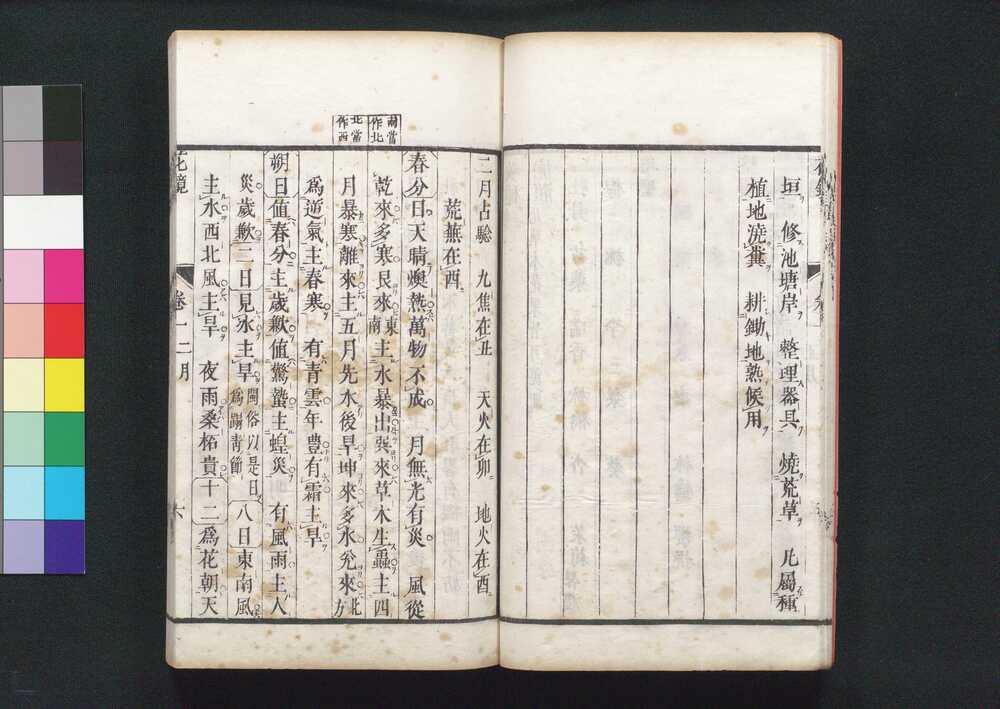 垣 修池塘岸 整理器具 燒荒草 凡屬種
植地澆糞 耕鋤地熟候用
二月占驗 九焦在丑 天火在卯 地火在酉
荒蕪在酉
春分日天晴燠熱萬物不成 月無光有災 風從
乾來多寒艮來東南主水暴出巽來草木生蟲主四
月暴寒離來主五月先水後旱坤來多水兊來北方
爲逆氣主春寒 有青雲年豊有霜主旱
朔日値春分主歲歉値驚蟄主蝗災 有風雨主人
災歲歉二日見氷主旱閩俗以是日爲踏靑節八日東南風
主水西北風主旱 夜雨桑柘貴十二爲花朝天
南當作北
北當作西
花鏡 卷一二月 六